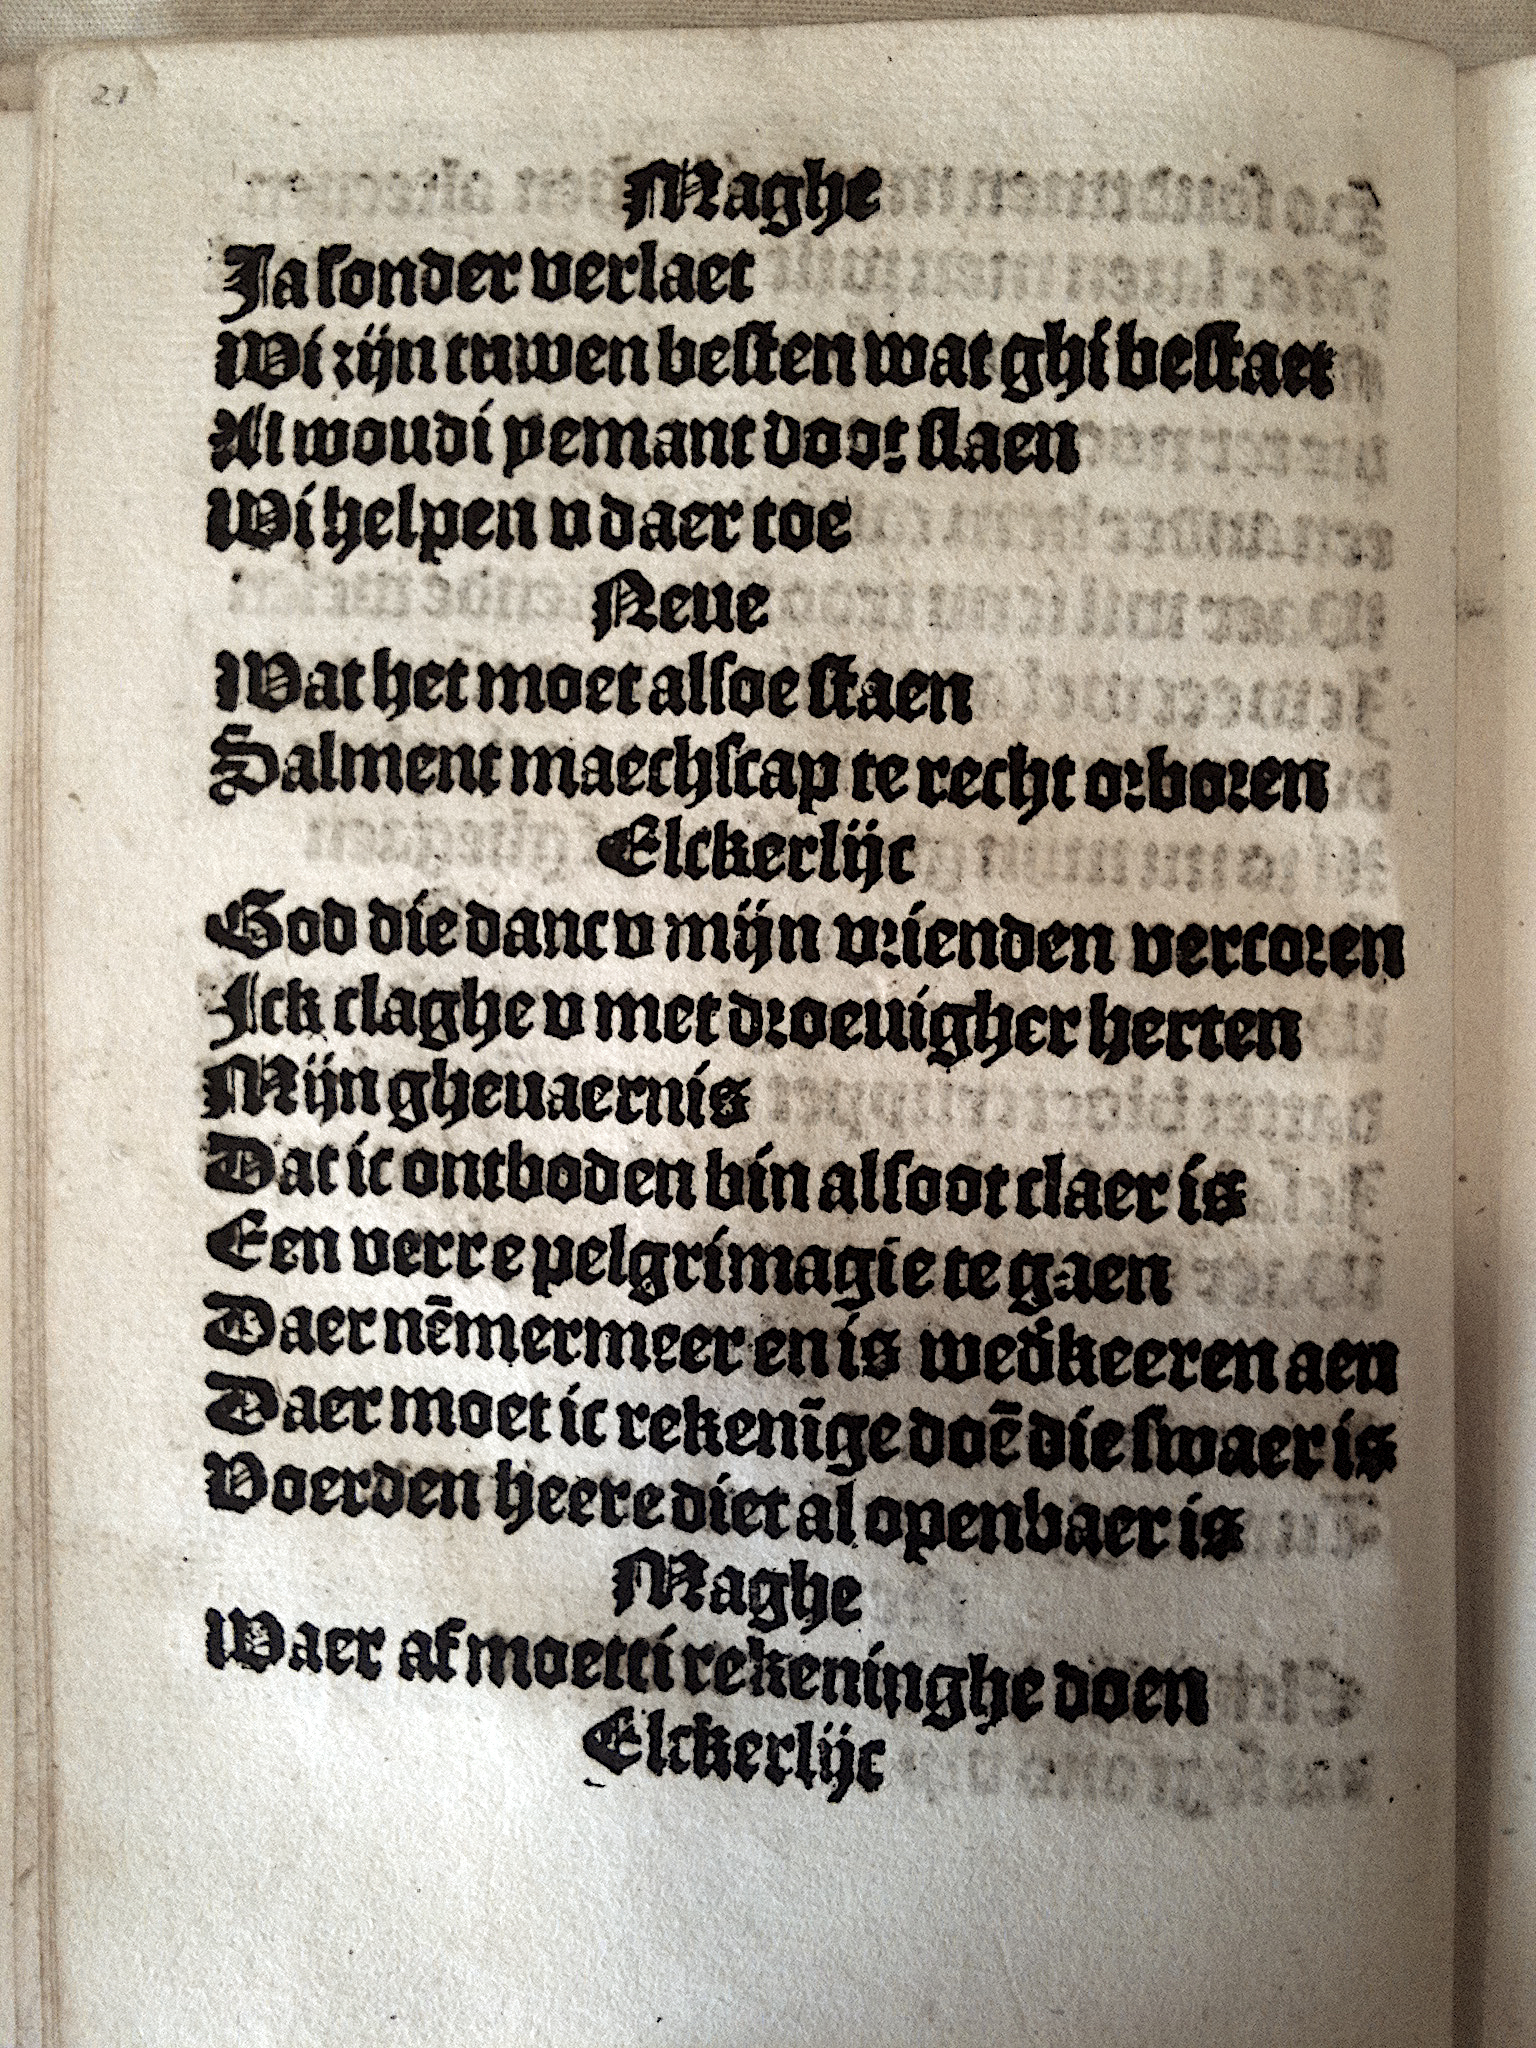 21
Maghe
Ja sonder verlaet
Wi zijn tuwen besten wat ghi bestaet
Al woudi yemant doot slaen
Wi helpen v daer toe
Neue
Wat het moet alsoe staen
Salment maechscap te recht orboren
Elckerlijc
God die danc v mijn vrienden vercoren
Ick claghe v met droeuigher herten
Mijn gheuaernis
Dat ic ontboden bin alsoot claer is
Een verre pelgrimagie te gaen
Daer nēmermeer en is wed̕keeren aen
Daer moet ic rekenīge doē die swaer is
Voerden heere diet al openbaer is
Maghe
Waer af moetti rekeninghe doen
Elckerlijc